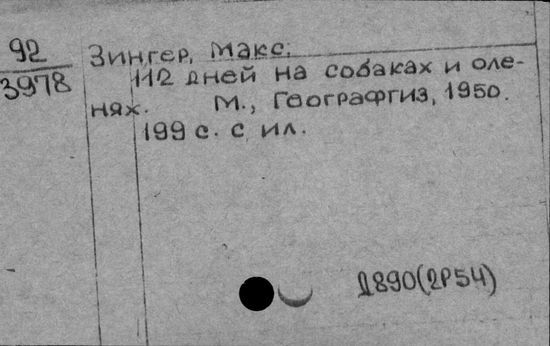 92
3978
Зингер, Макс.
112 дней на собаках и оле-
нях. М., Географгиз, 1950.
199 с. с ил.
Д890(2Р54)